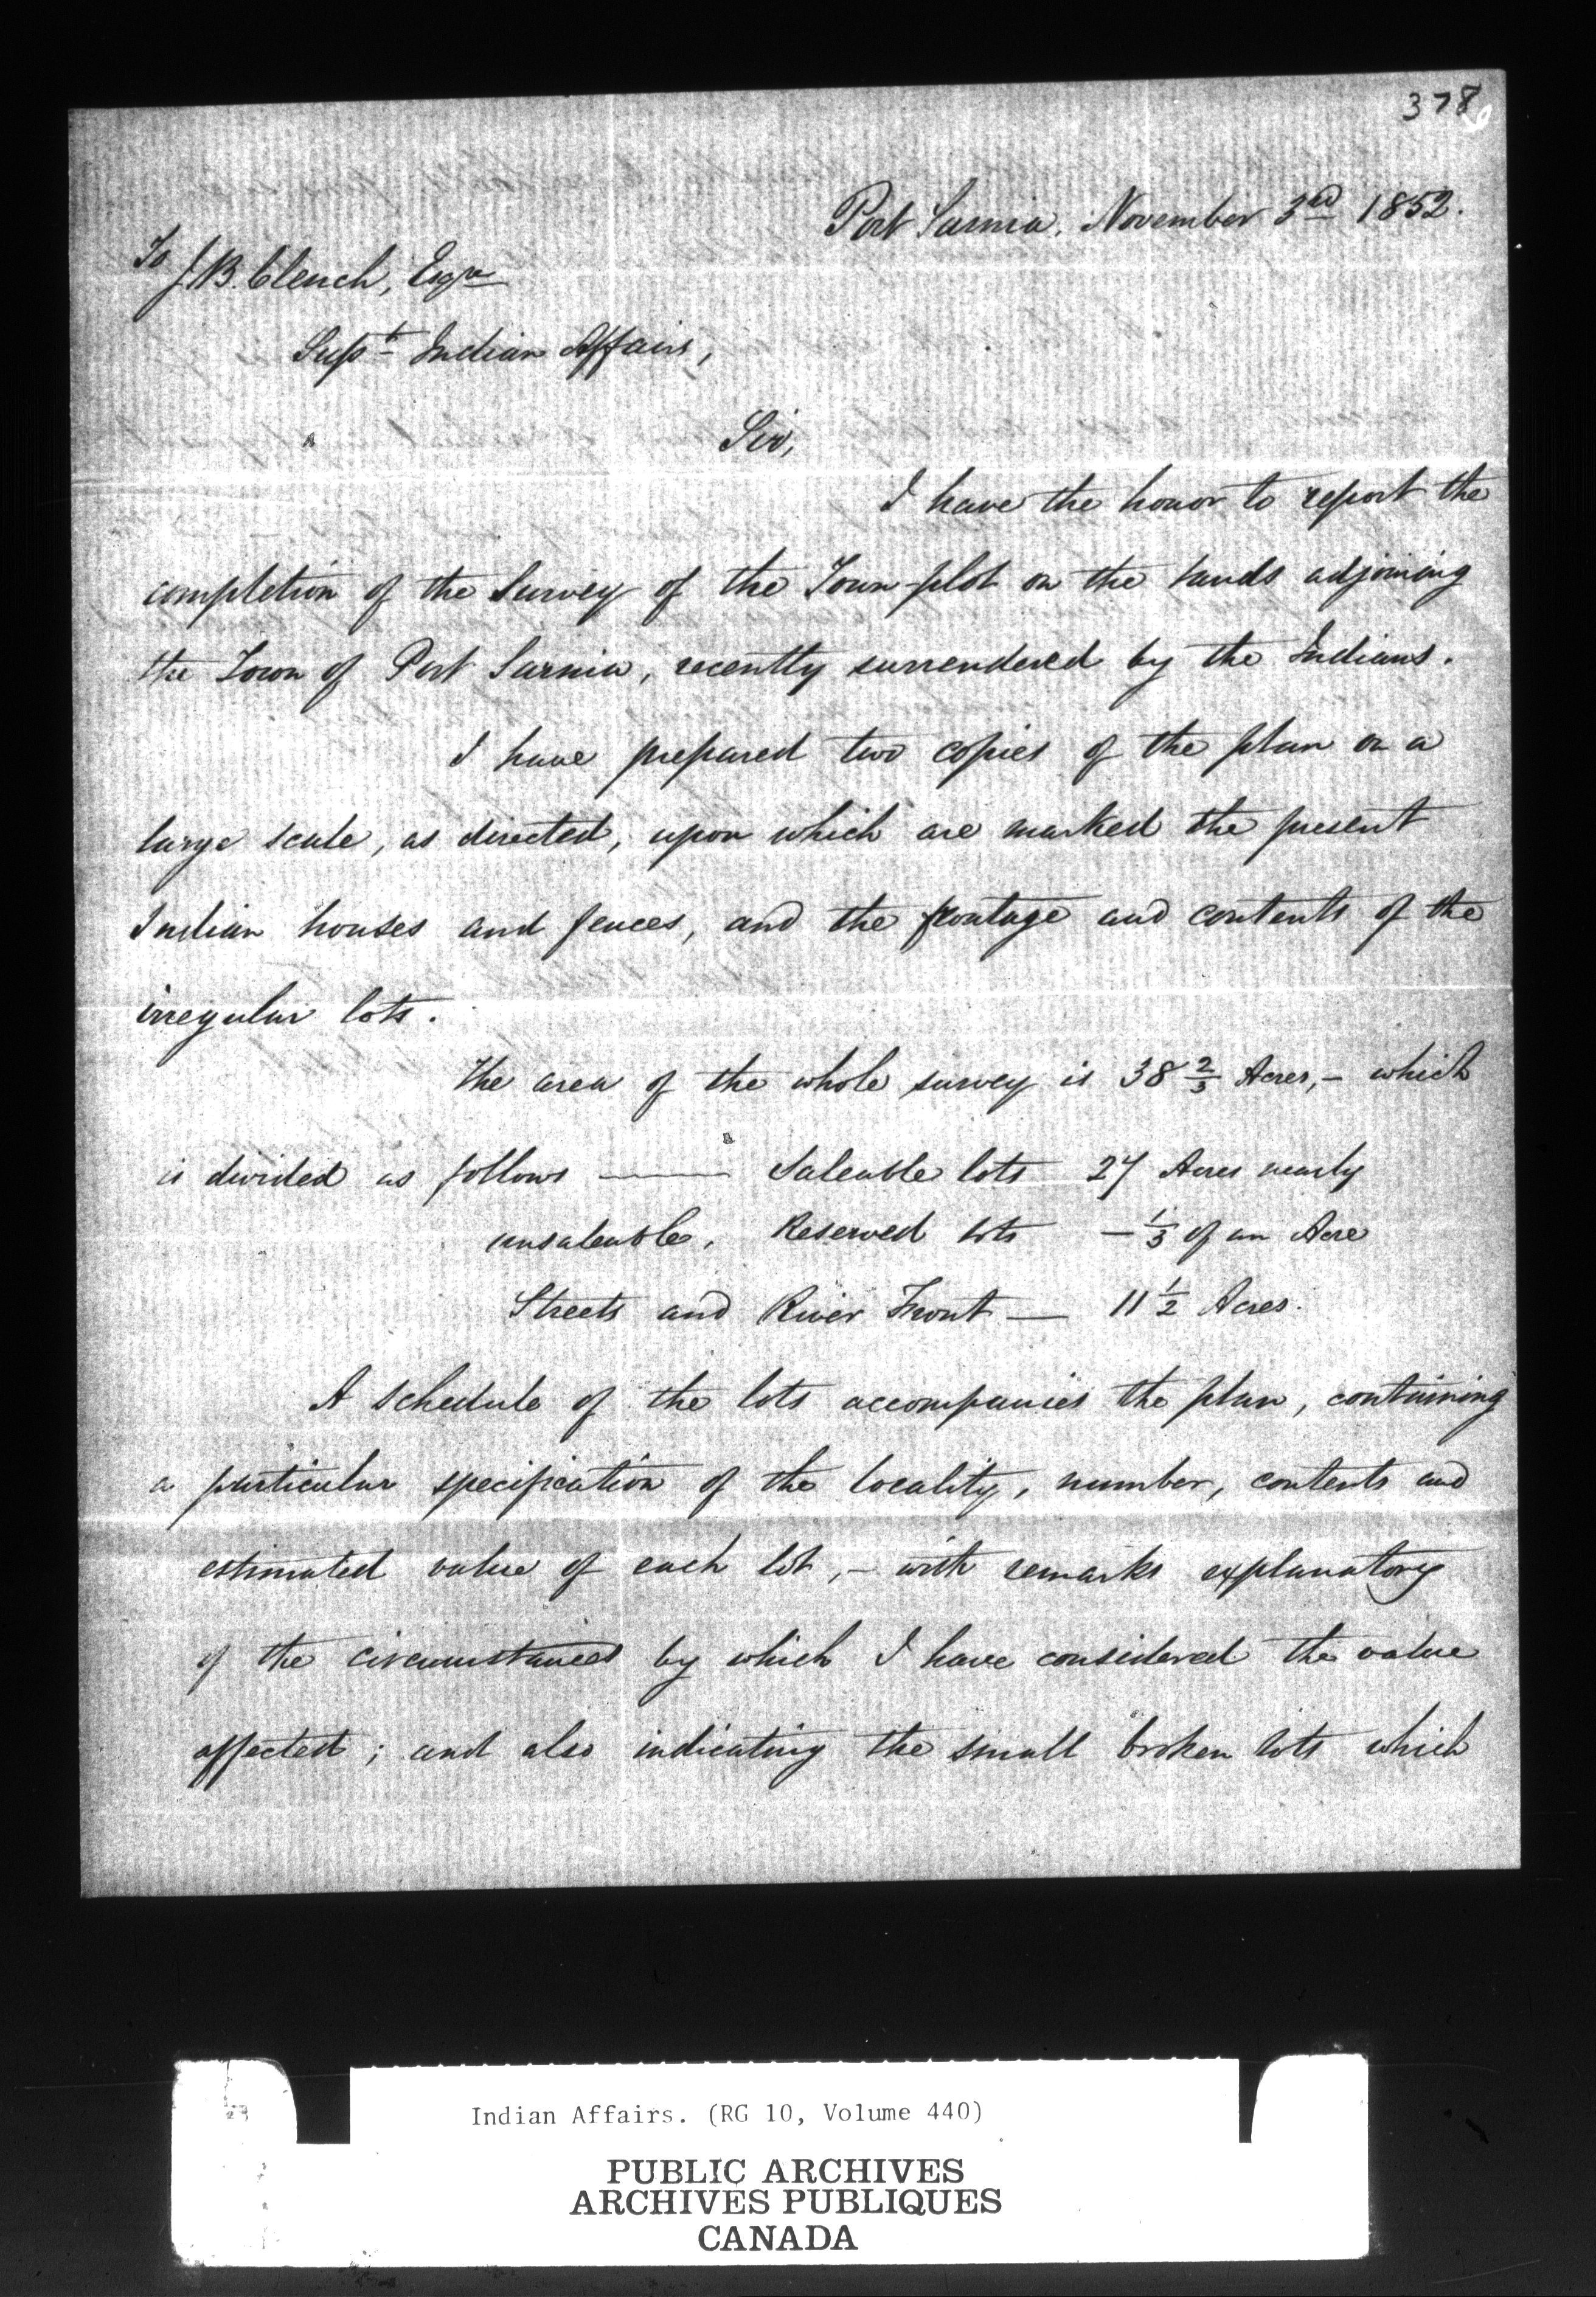 378
Port Sarnia. November 3rd 1852.
To
J. B. Clench, Esqre
Supt Indian Affairs,
Sir,
I have the honor to report the
completion of the Survey of the Town-plot on the lands adjoining
the Town of Port Sarnia, recently surrendered by the Indians.
I have prepared two copies of the plan on a
large scale, as directed, upon which are marked the present
Indian houses and fences, and the frontage and contents of the
irregular lots.
The area of the whole survey is 38 2/3 Acres,- which
is divided as follows —— Saleable lots 27 Acres nearly
unsaleable, Reserved lots - 1/3 of an Acre
Streets and River Front — 11 1/2 Acres.
A schedule of the lots accompanies the plan, containing
a particular specification of the locality, number, contents and
estimated value of each lot,- with remarks explanatory
of the circumstances by which I have considered the value
affected; and also indicating the small broken lots which
Indian Affairs. (RG 10, Volume 440)
PUBLIC ARCHIVES
ARCHIVES PUBLIQUES
CANADA